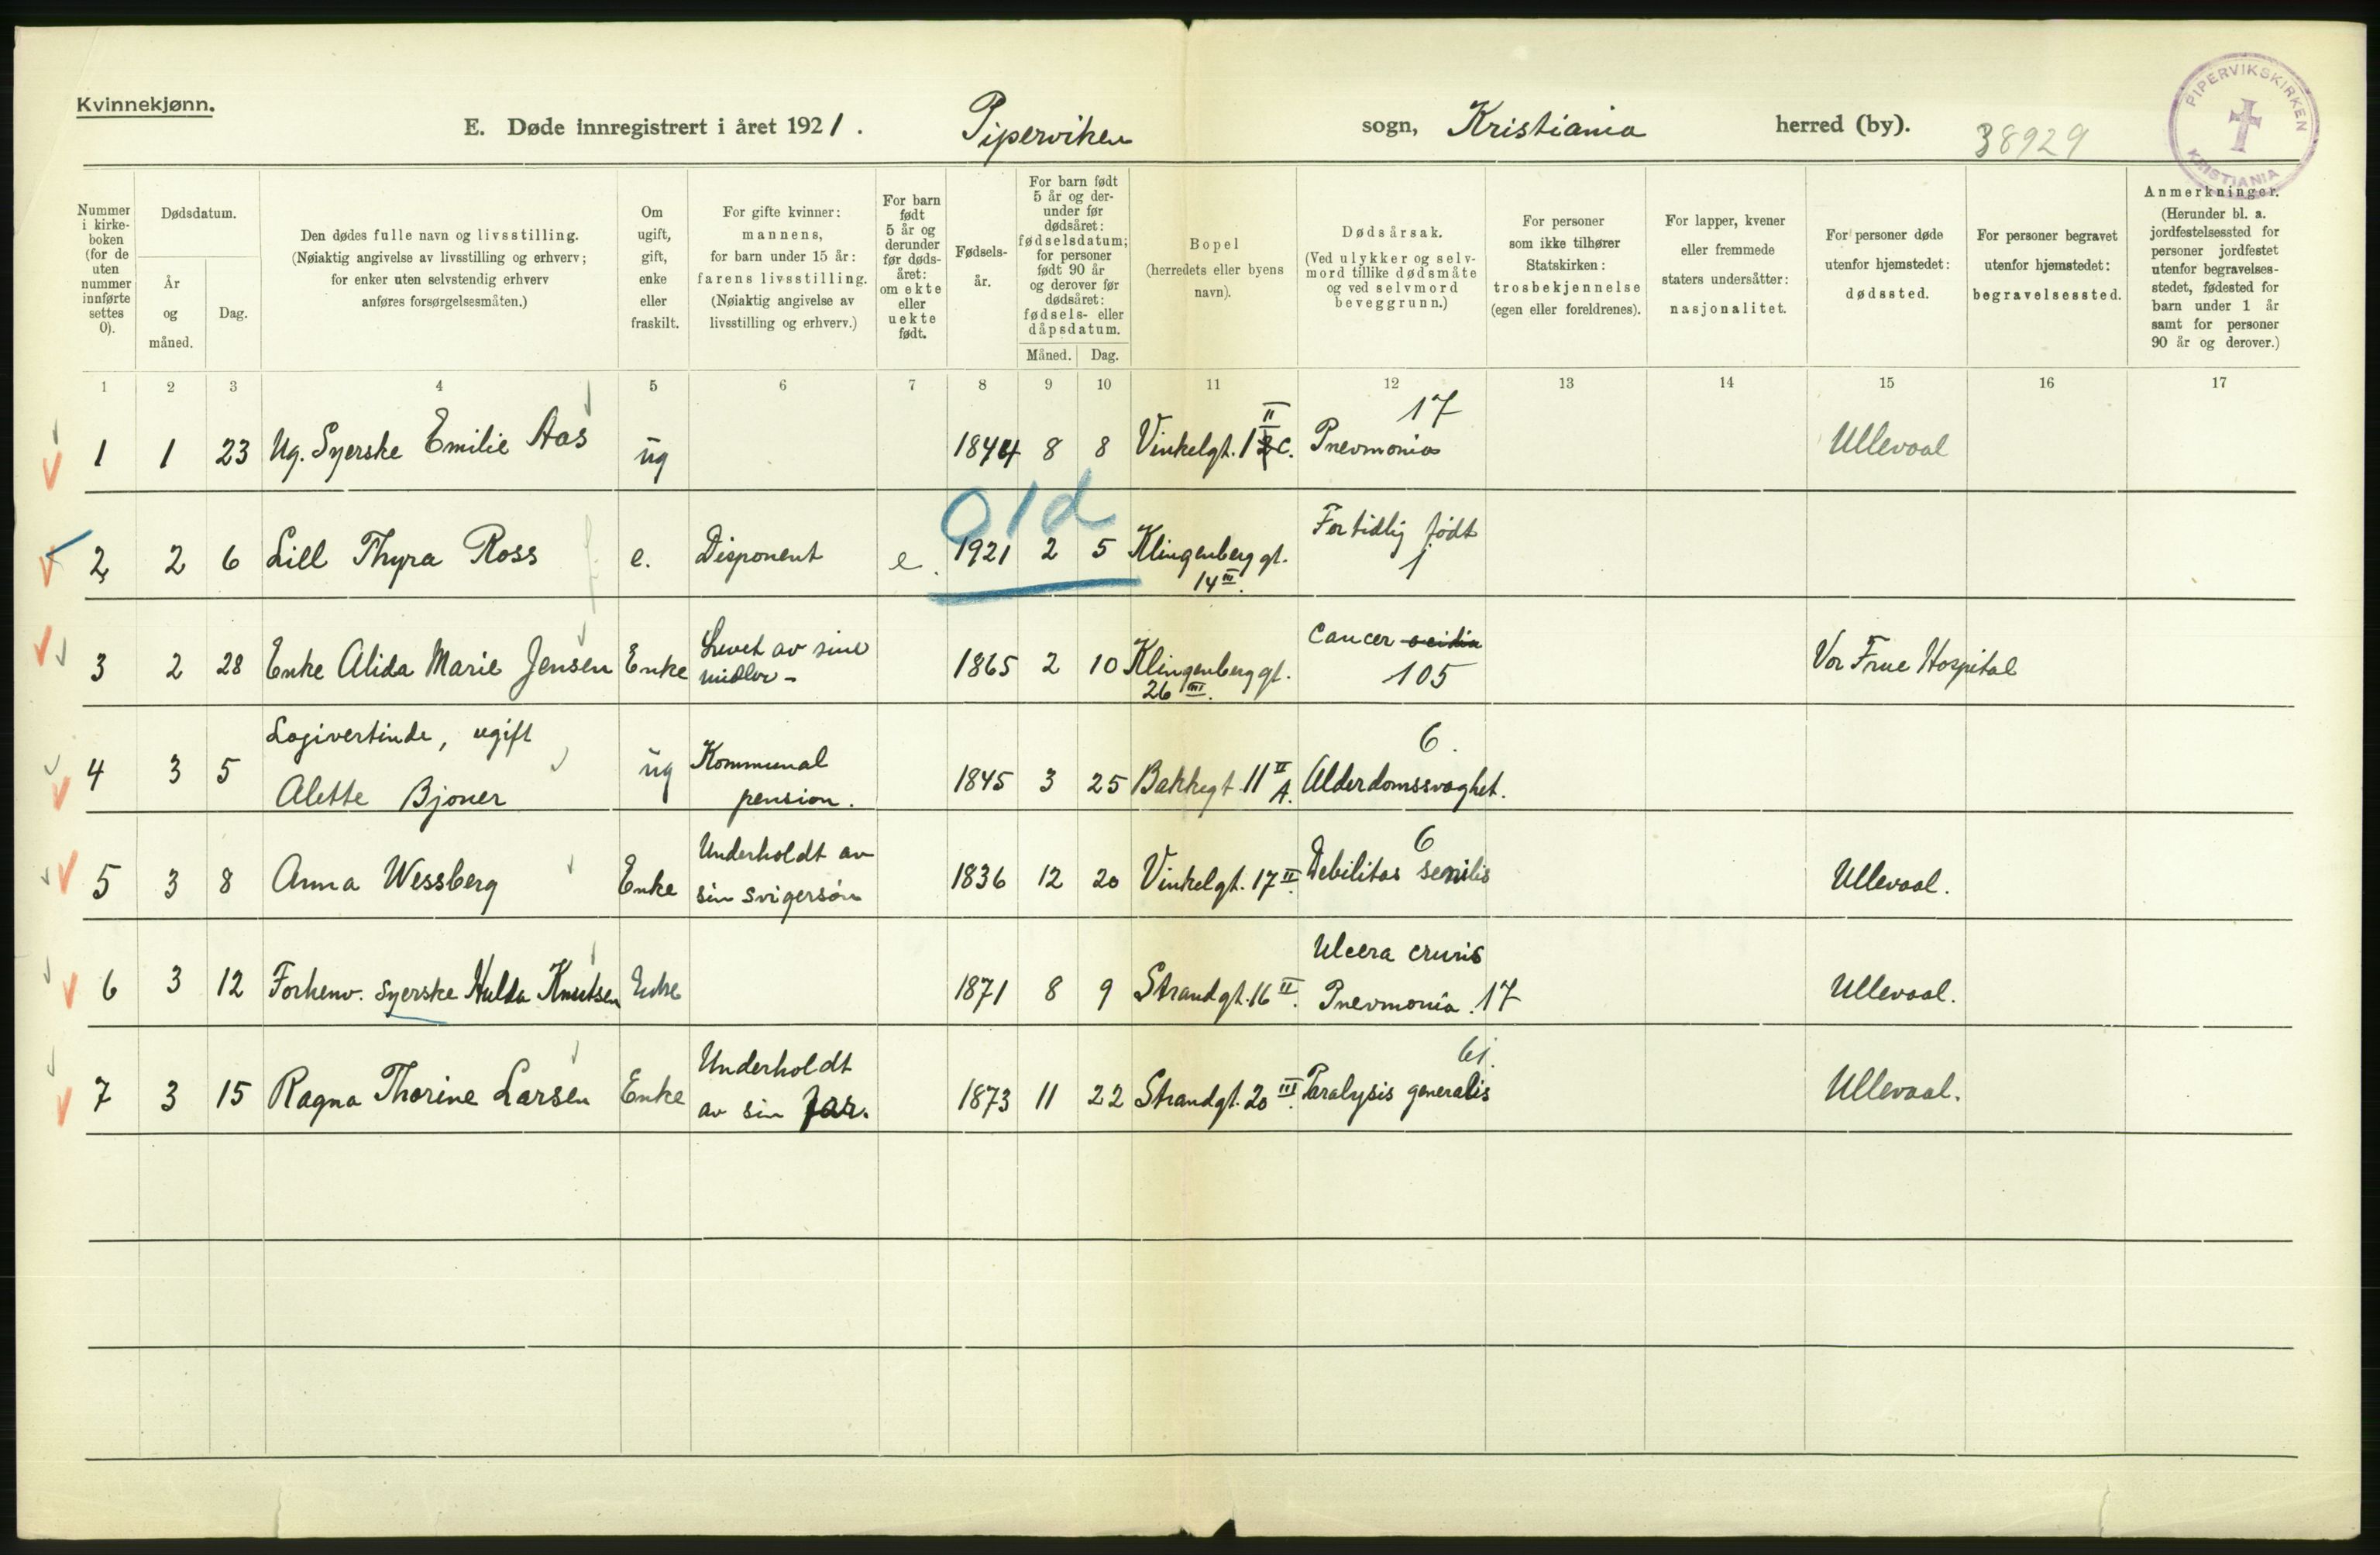 Kvinnekjønn.
E. Døde innregistrert i året 1921. Piperviken sogn, Kristiania herred (by).
38929
PIPERVIKSKIRKEN
KRISTIANIA
Nummer i kirkeboken (for de uten nummer innførte settes 0).
Dødsdatum.
År og måned.
Dag.
Den dødes fulle navn og livsstilling.
(Nøiaktig angivelse av livsstilling og erhverv;
for enker uten selvstendig erhverv
anføres forsørgelsesmåten.)
Om
ugift,
gift,
enke
eller
fraskilt.
For gifte kvinner:
mannens,
for barn under 15 år:
farens livsstilling.
(Nøiaktig angivelse av
livsstilling og erhverv.)
For barn
født
5 år og
derunder
før døds-
året:
om ekte
eller
uekte
født.
Fødsels-
år.
For barn født
5 år og der-
under før
dødsåret:
fødselsdatum;
for personer
født 90 år
og derover før
dødsåret:
fødsels- eller
dåpsdatum.
Måned. Dag.
Bopel
(herredets eller byens
navn).
Dødsårsak.
(Ved ulykker og selv-
mord tillike dødsmåte
og ved selvmord
beveggrunn.)
For personer
som ikke tilhører
Statskirken:
trosbekjennelse
(egen eller foreldrenes).
For lapper, kvener
eller fremmede
staters undersåtter:
nasjonalitet.
For personer døde
utenfor hjemstedet:
dødssted.
For personer begravet
utenfor hjemstedet:
begravelsessted.
Anmerkninger.
(Herunder bl. a.
jordfestelsessted for
personer jordfestet
utenfor begravelses-
stedet, fødested for
barn under 1 år
samt for personer
90 år og derover.)
1 2 3 4 5 6 7 8 9 10 11 12 13 14 15 16 17
17
1 1 23 Ug. Syerske Emilie Aas ug 1844 8 8 Vinkelgt. Pnevmonia Ullevaal
01d
2 2 6 Lill Thyra Ross e. Disponent e. 1921 2 5 Klingenberg gt. 14 III. For tidlig født
1
3 2 28 Enke Alida Marie Jensen Enke Levet av sine midler - 1865 2 10 Klingenberg gt. 26 III. Cancer Vor Frue Hospital
105
4 3 5 Logivertinde, ugift Alette Bjoner ug Kommunal pension. 1845 3 25 Bakkegt. 11 II A. Alderdomssvaghet.
6.
5 3 8 Anna Wessberg Enke Underholdt av sin svigersøn 1836 12 20 Vinkelgt. 17 II. Debilitas senilis Ullevaal.
6
6 3 12 Forhenv. Syerske Hulda Knutsen Enke 1871 8 9 Strandgt. 16 II. Ulcera cruris Pnevmonia. 17 Ullevaal.
61.
7 3 15 Ragna Thorine Larsen Enke Underholdt av sin far. 1873 11 22 Strandgt. 20 III. Paralysis generalis Ullevaal.